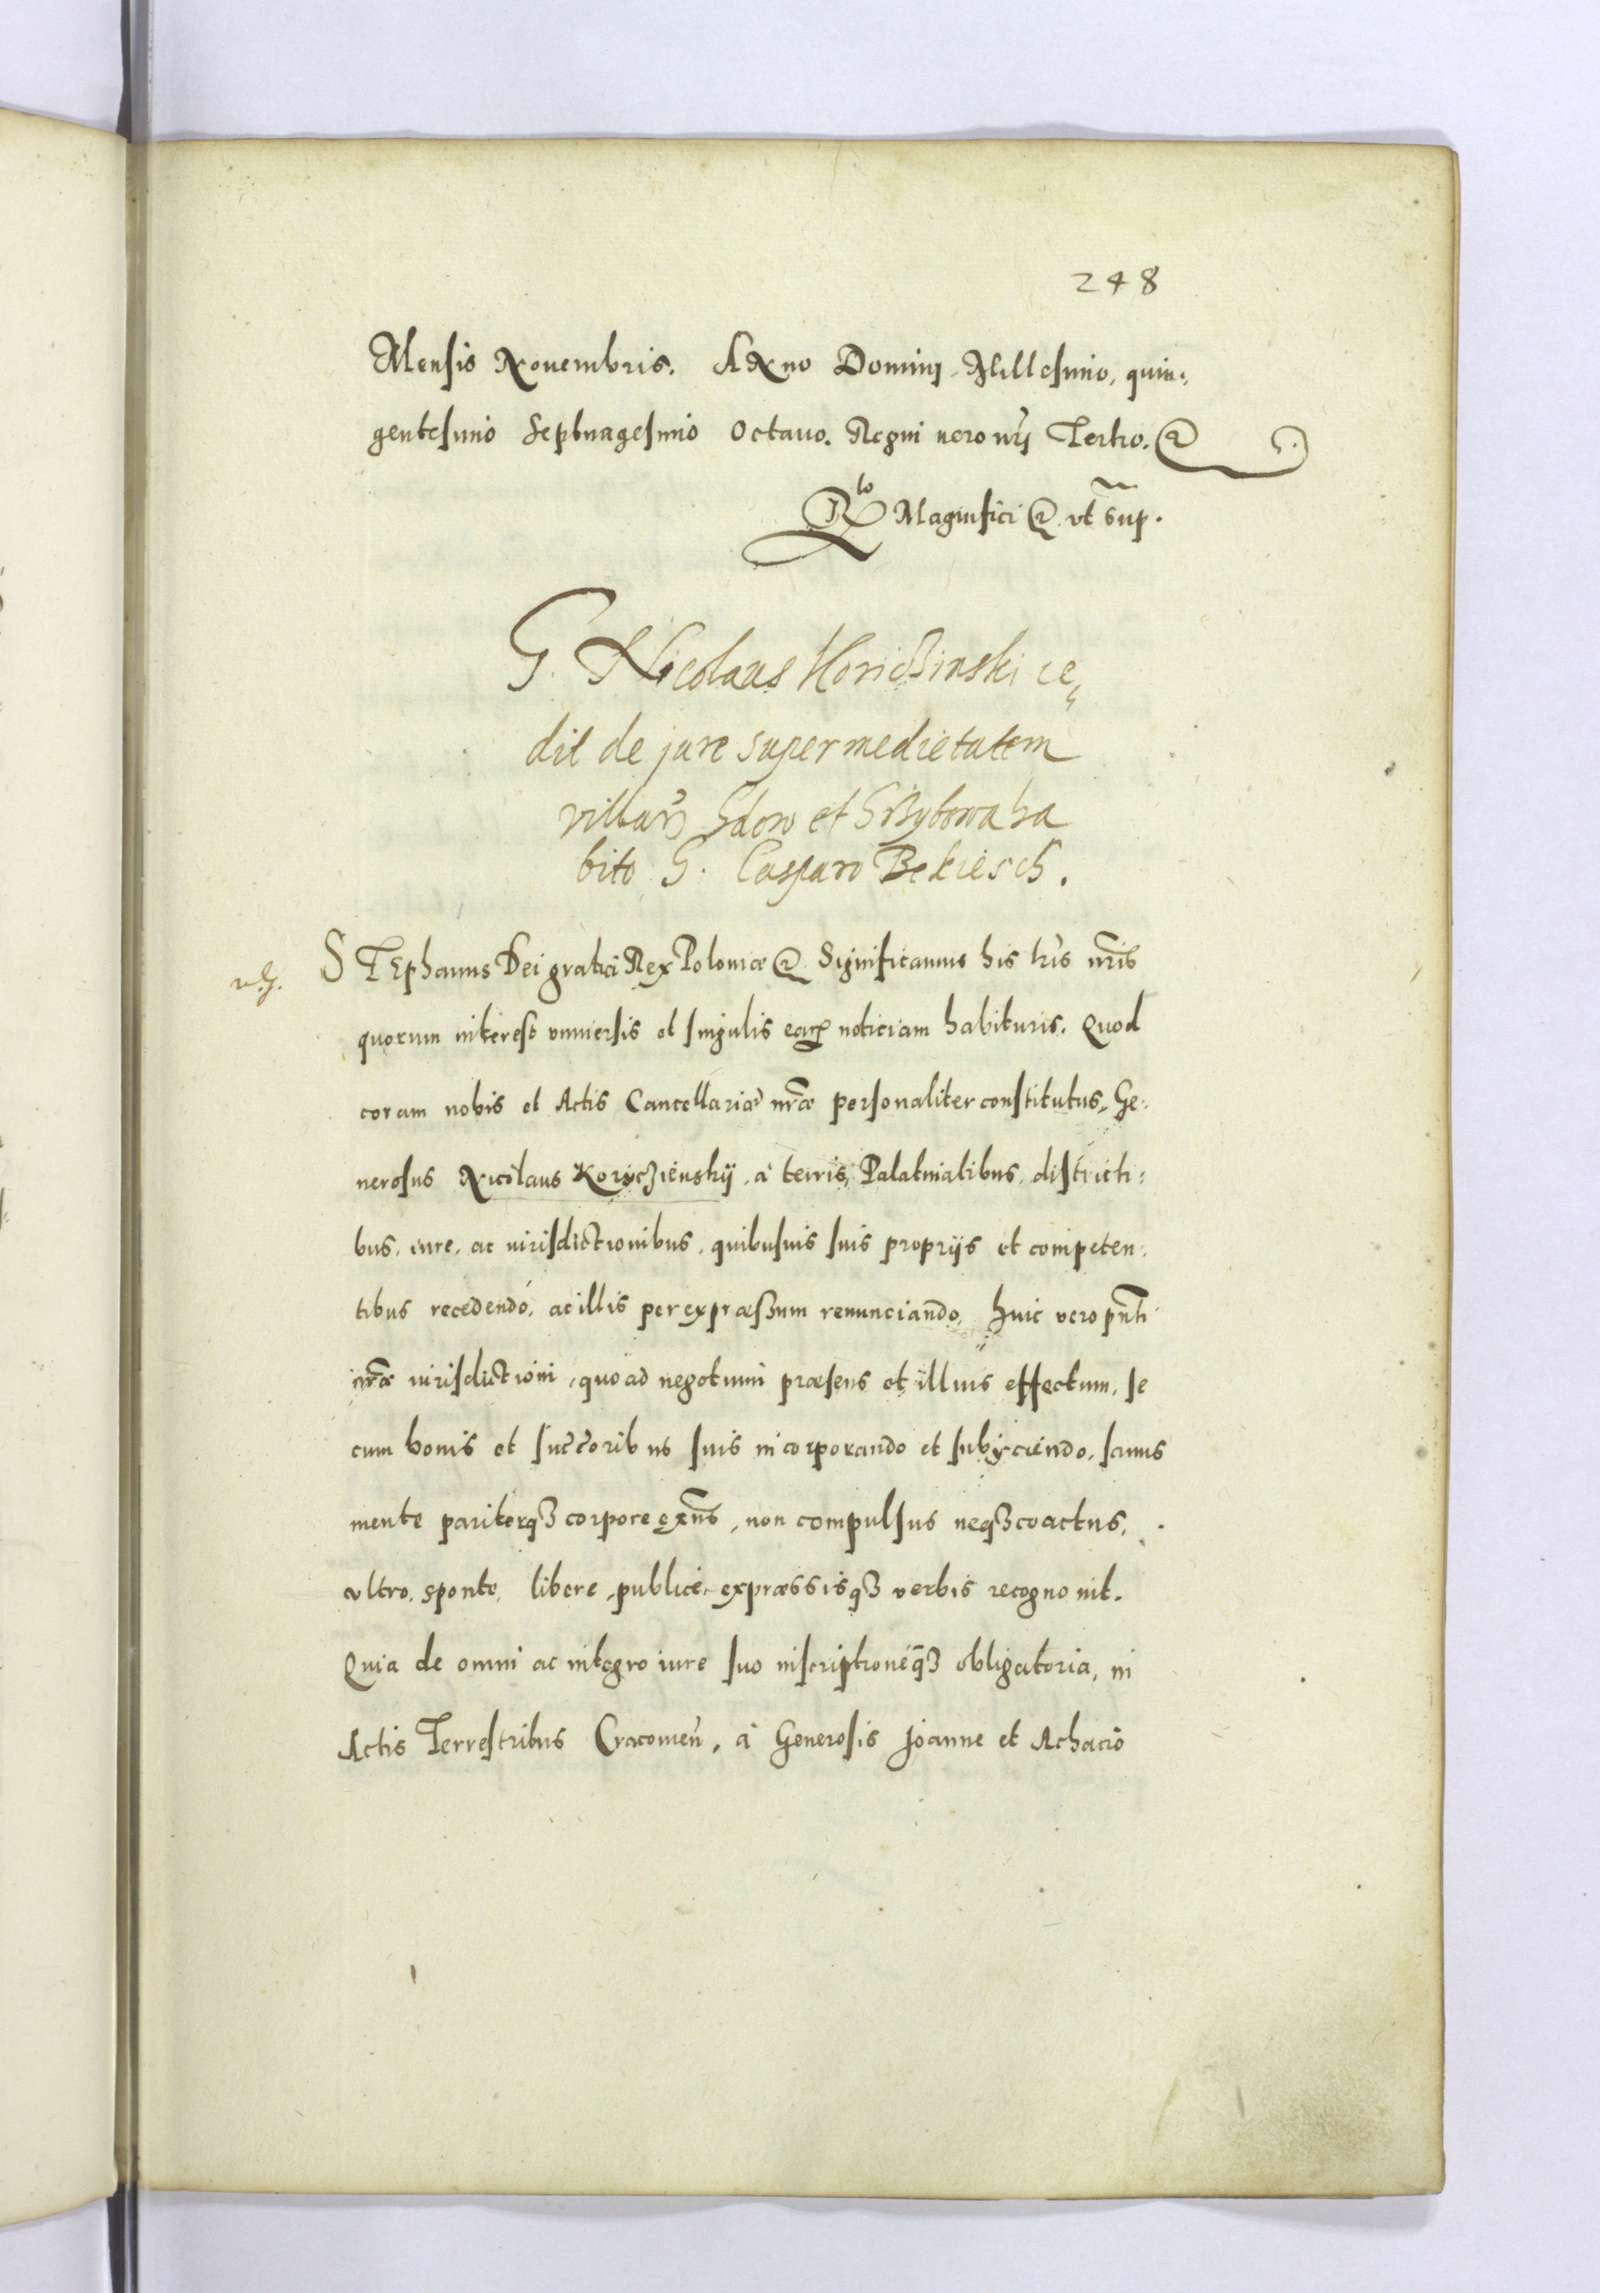 248
Mensis Nouembris. Anno Domini Millesimo, quin:
gentesimo Septuagesimo Octauo. Regni uero nri Tertio. &
Rlo Magnifici & vt sup.
G. Nicolaus Koriczinski ce
dit de jure super medietatem
villarum Gdow et Grzybowa ha
bito G. Casparo Bekiesch.
STEphanus Dei gratia Rex Poloniæ & Significamus his lris nris
quorum interest vniuersis et singulis earum noticiam habituris. Quod
coram nobis et Actis Cancellariæ nræ personaliter constitutus, Ge:
nerosus Nicolaus Koryczienskÿ, à terris, Palatinatibus, districti:
bus, iure, ac iurisdictionibus, quibusuis suis proprijs et competen:
tibus recedendo, ac illis per expræssum renunciando, huic vero pnti
nræ iurisdictioni, quo ad negotium præsens et illius effectum, se
cum bonis et succoribus suis incorporando et subijciendo, sanus
mente pariterq3 corpore exns, non compulsus neq3 coactus,
vltro, sponte, libere, publice, expræssisq3 verbis recognouit.
Quia de omni ac integro iure suo inscriptioneq3 obligatoria, in
Actis Terrestribus Cracouien, à Generosis Joanne et Achacio